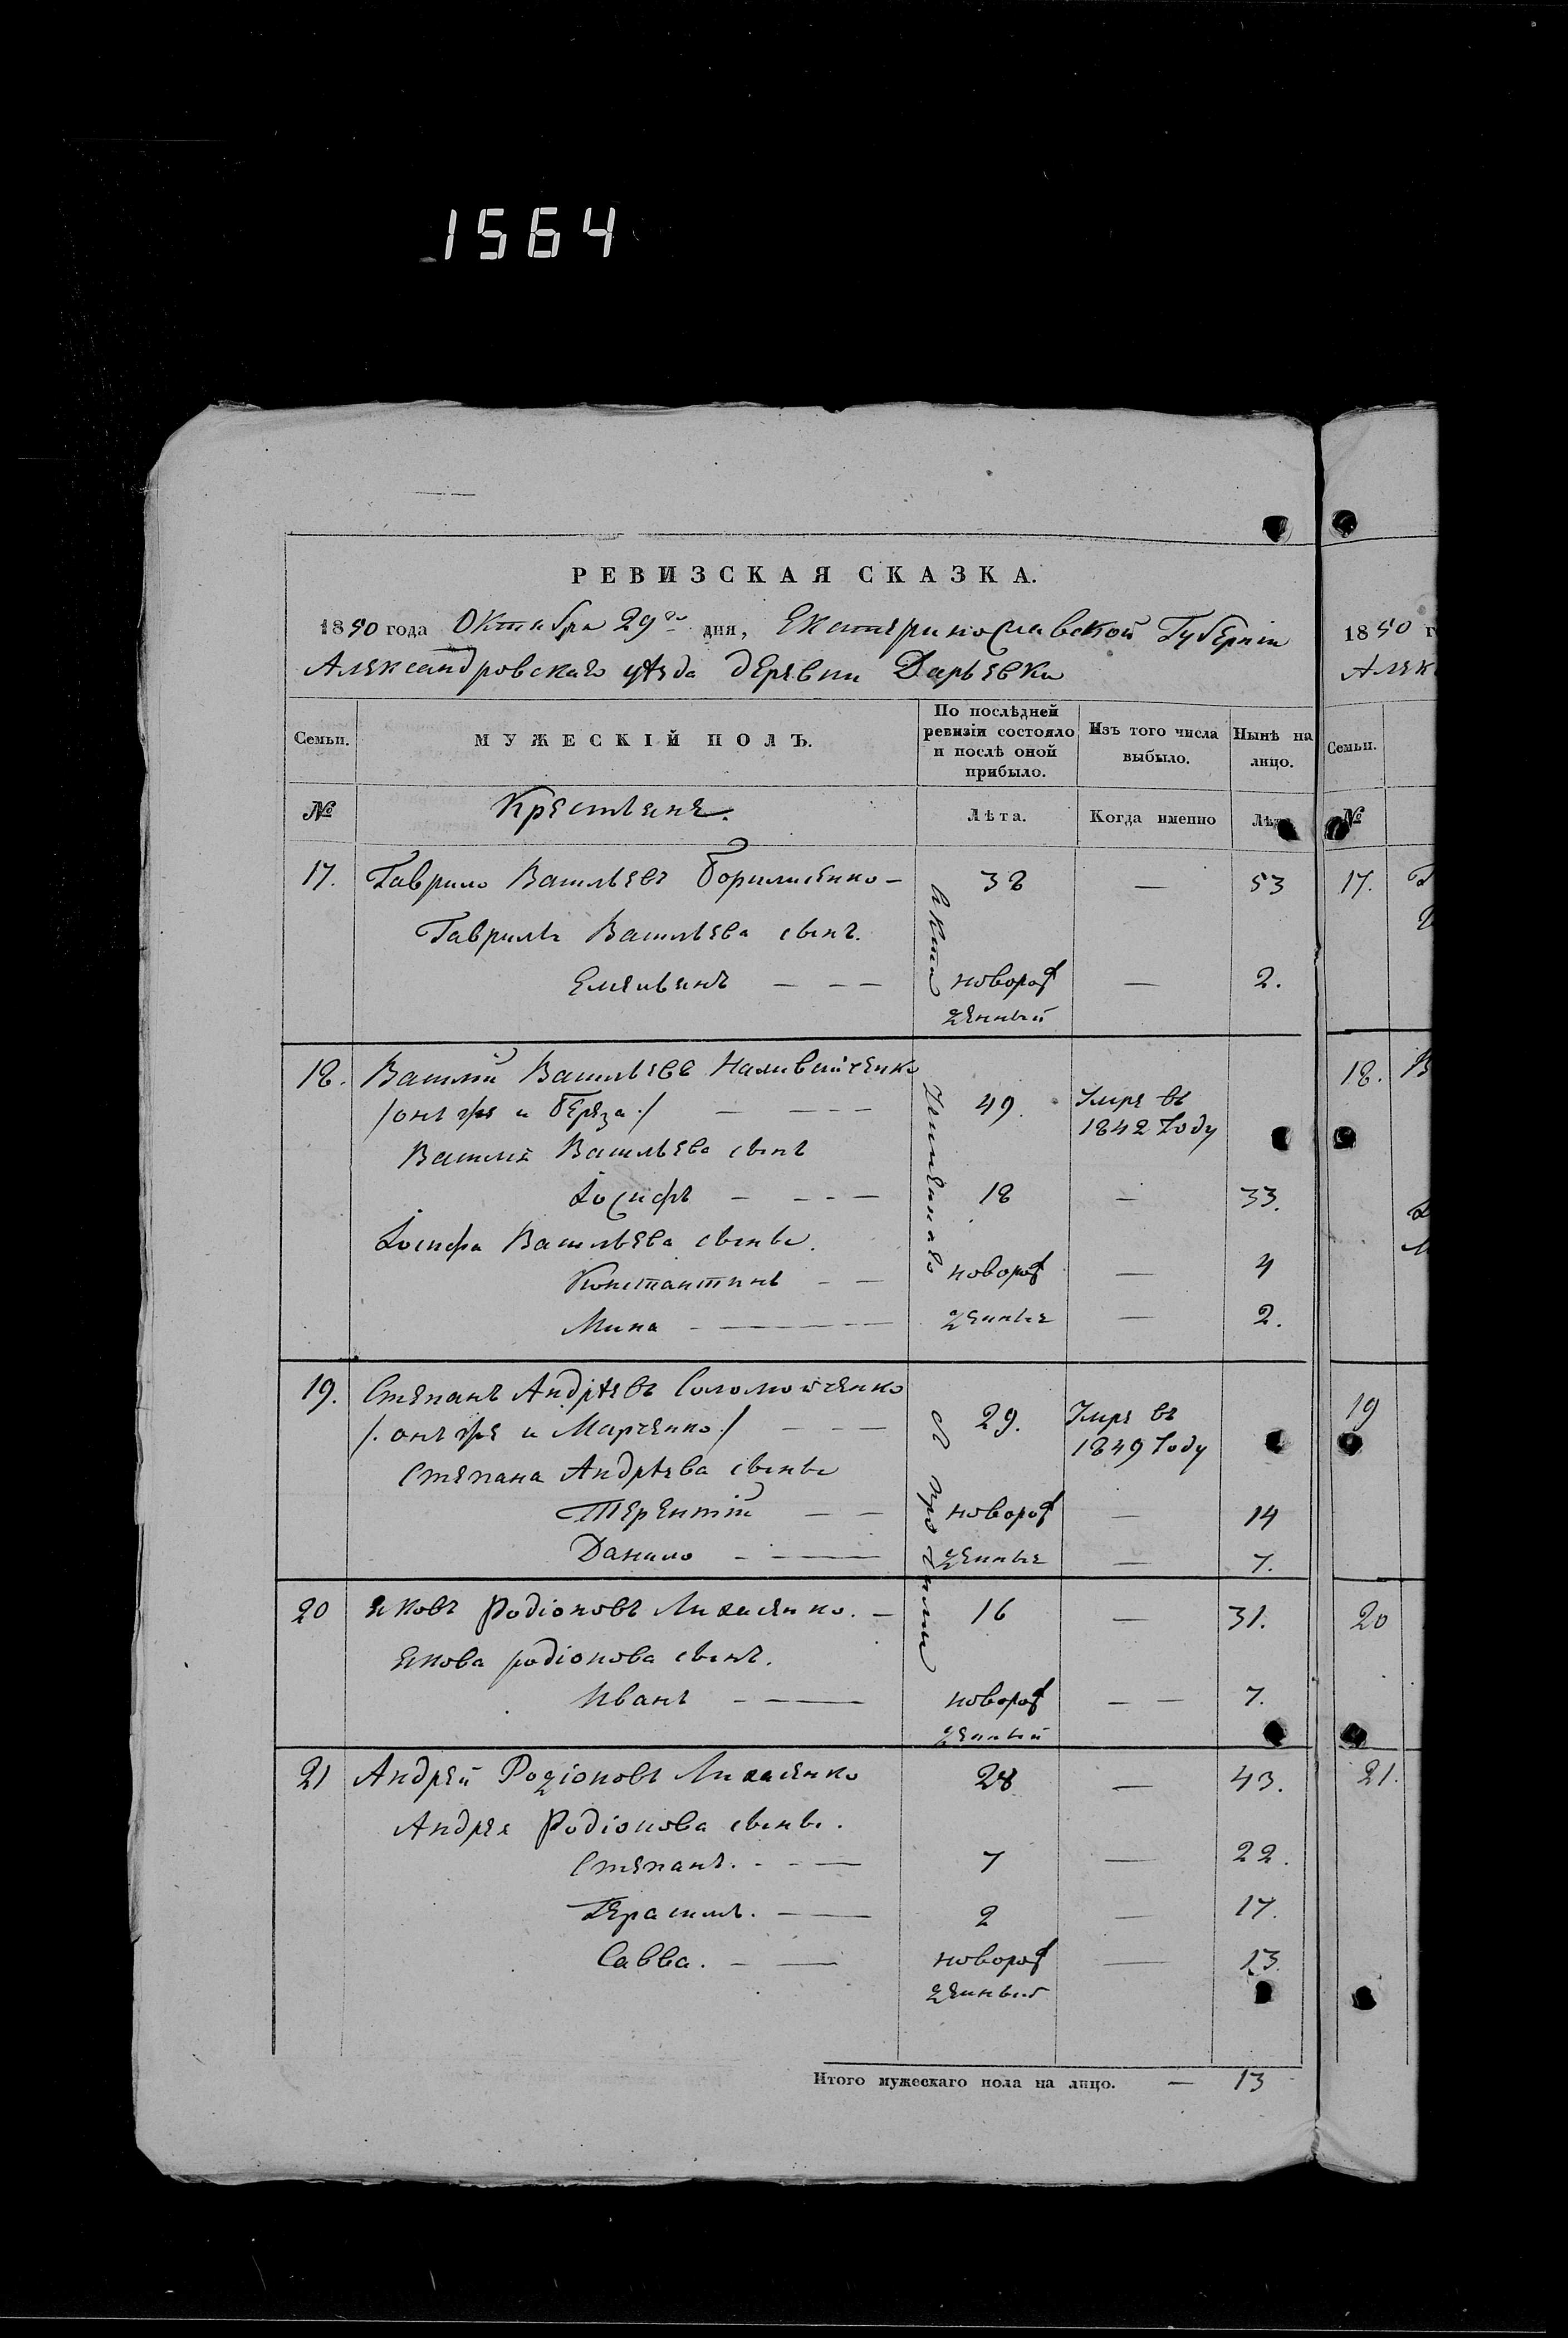 1564
РЕВИЗСКАЯ СКАЗКА.
1850 года Октября 29го дня, Екатеринославской Губерніи
Александровскаго уѣзда деревни Дарьевки
Семьи. МУЖЕСКІЙ ПОЛЪ. По послѣдней ревизіи состояло и послѣ оной прибыло. Изъ того числа выбыло. Нынѣ на лицо.
№ Крестьяне. Лѣта. Когда именно Лѣта
17. Гаврило Васильевъ — 38 — 53
Гаврила Васильева сынъ.
Емельянъ — — — новорож — 2.
денный
18. Василій Васильевъ Наливайченко
/онъ же и Береза./ — — — — 49. Умре въ
1842 Году
Василія Васильева сынъ
Іосифъ — — — — 18 — 33.
Іосифа Васильева сыны.
Константинъ — — новорож — 4
Мина — — — — денные — 2.
19. Степанъ Андрѣевъ Соломойченко
/.онъ же и Марченко./ — — — 29. Умре въ
1849 Году
Степана Андрѣева сыны
Терентій — — новорож — 14
Данило — — денные — 7.
20 Яковъ Родіоновъ Лихасенко. — 16 — 31.
Якова родіонова сынъ.
Иванъ — — новорож — — 7.
денный
21 Андрей Родіоновъ Лихасенко 28 — 43.
Андрея Родіонова сыны.
Степанъ. - - — 7 — 22.
Герасимъ. — — 2 — 17.
Савва. — — новорож — 13.
денный
Итого мужескаго пола на лицо. — 13
1850 г
Алек
Семьи.
№
17.
18. В
19
20
21.